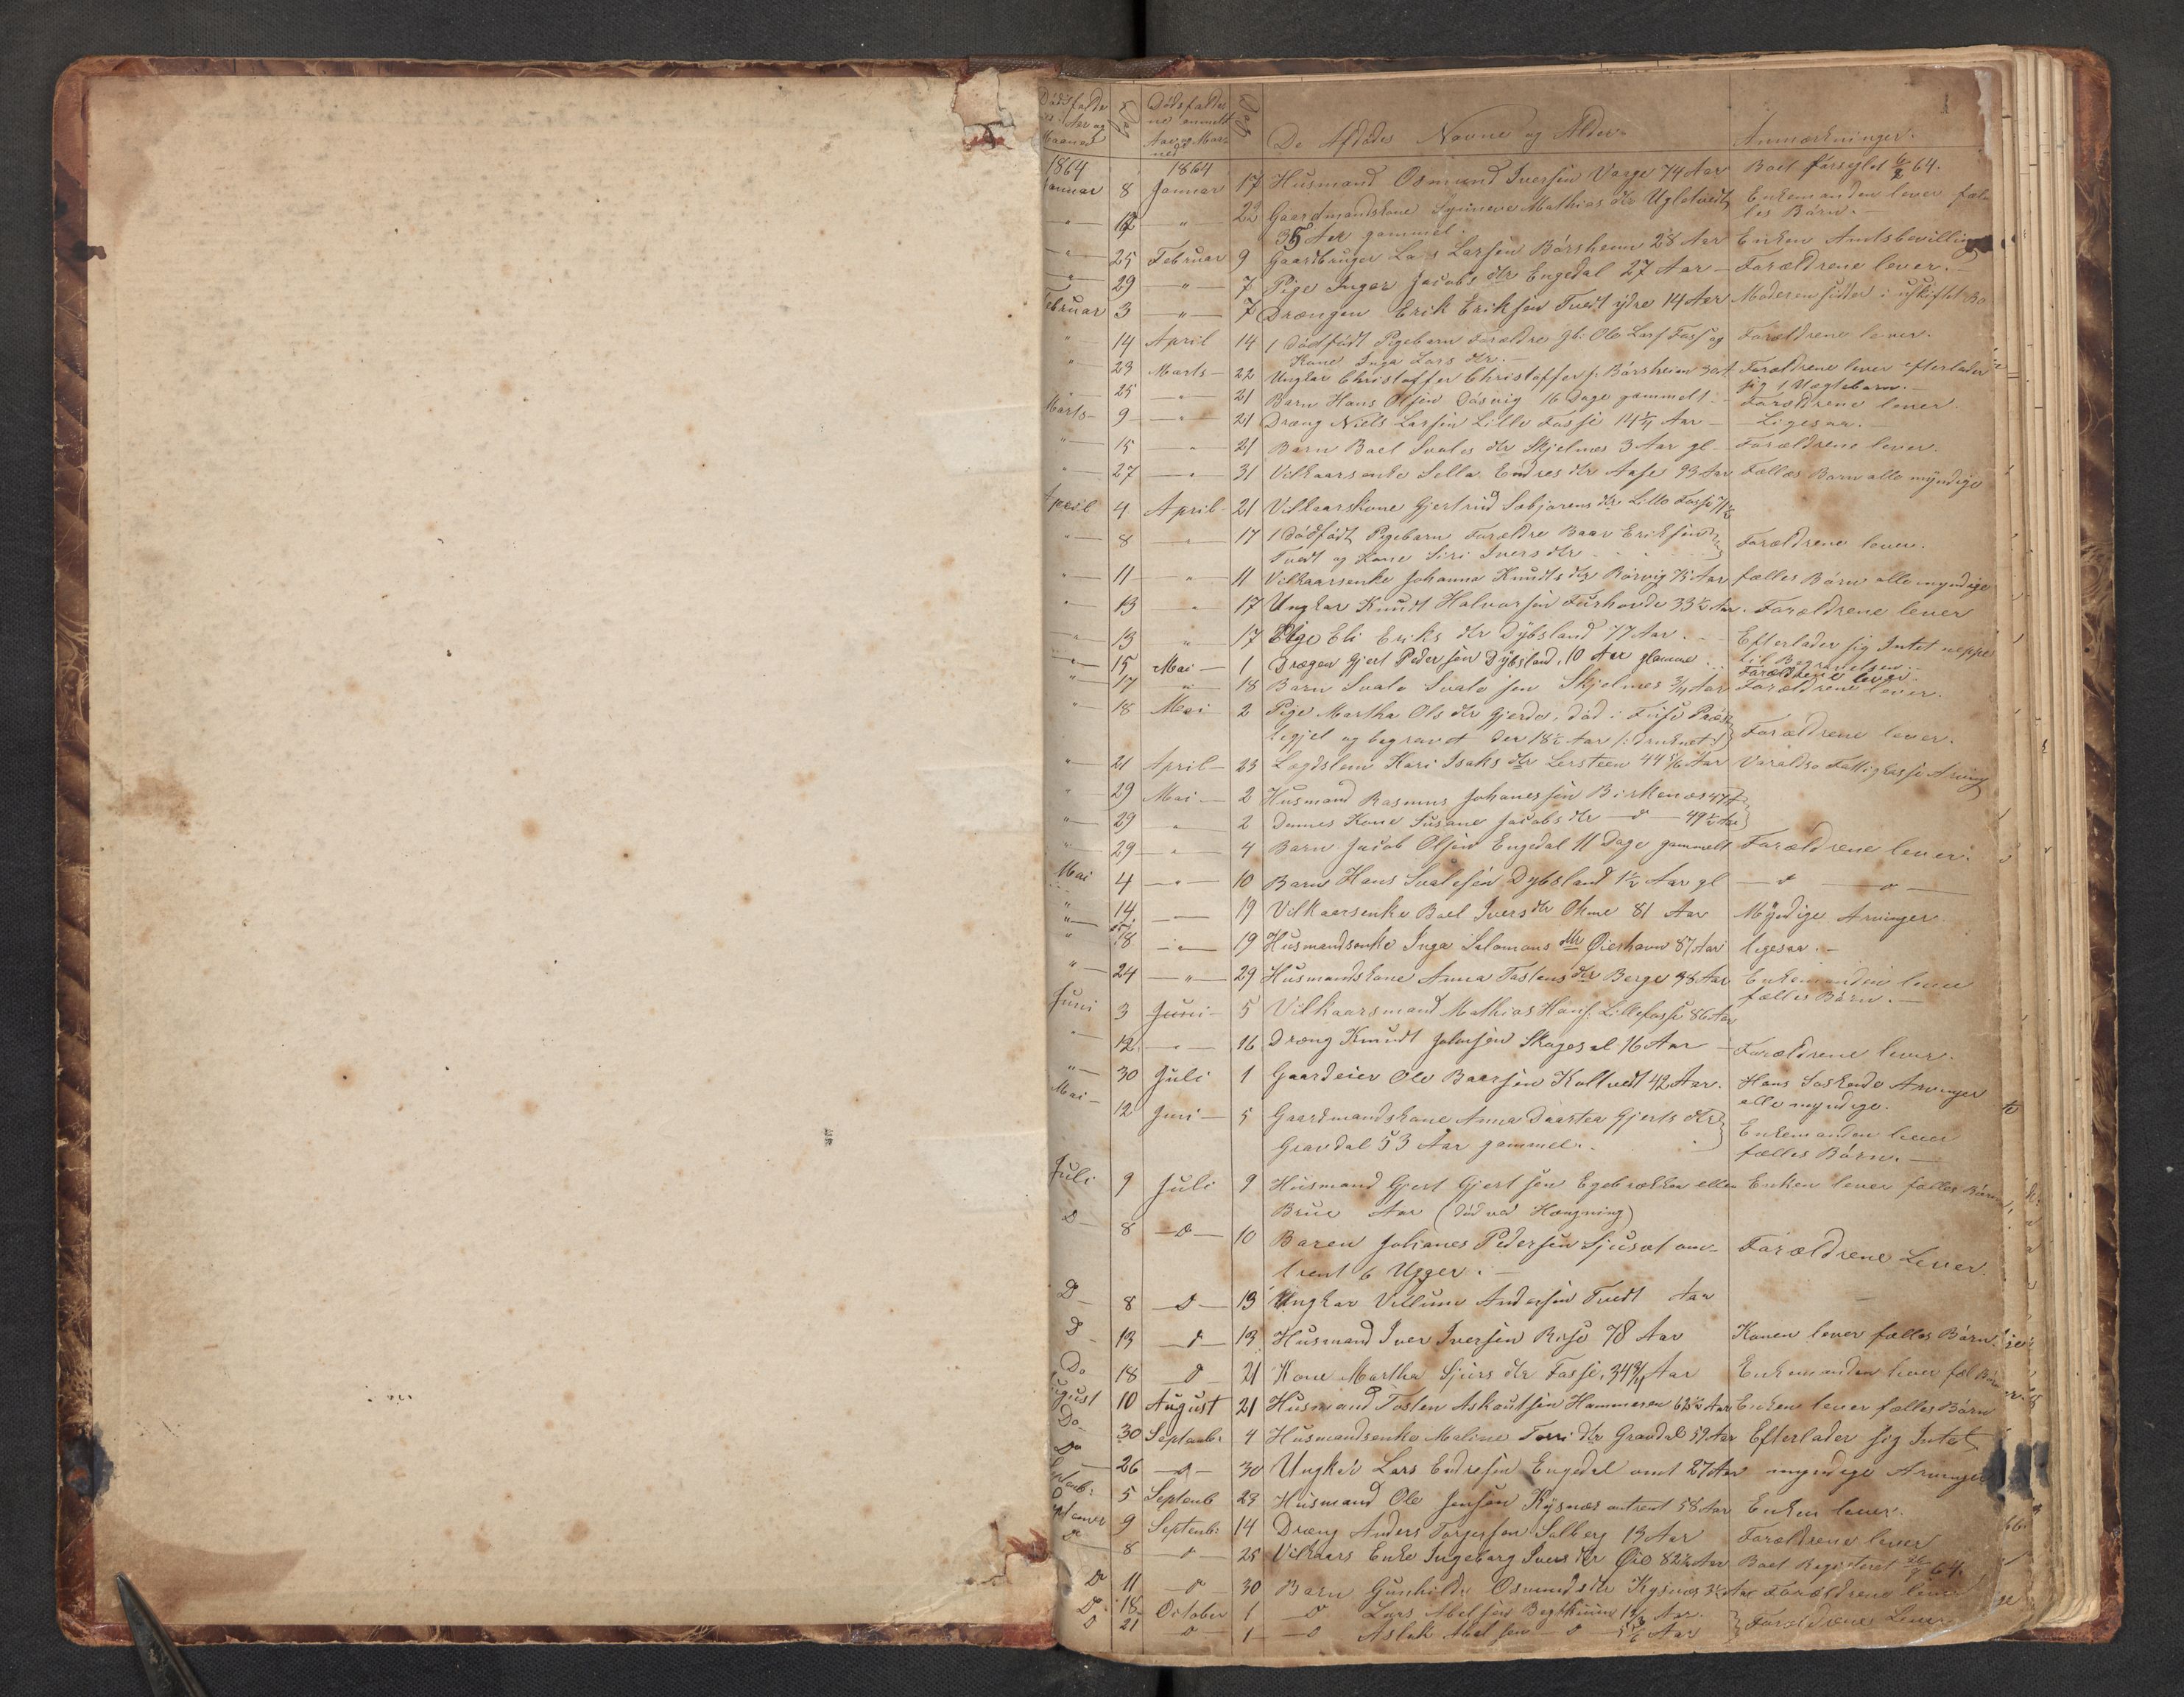 Dødsfaldene Aar og Maaned Dag Dødsfaldene anmeldt Aar og Maaned Dag De Afdødes Navne og Alder Anmærkninger.
1864 1864
Januar 8 Januar 17 Husmand Osmund Iversen Vaage 74 Aar Boet forseglet 6/2 64.
" 12 " 22 Gaardmandskone Synneve Mathias dtr Ugletvedt Enkemanden lever fæl-
35 Aar gammel. les Børn.
" 25 Februar 9 Gaardbruger Lars Larsen Børsheim 28 Aar Enken Amtsbevilling
" 29 " 7 Pige Inger Jacobs dtr Engedal 27 Aar Forældrene lever.
Februar 3 " 7 Drængen Erik Eriksen Tvedt ydre 14 Aar Moderen sidder i uskiftet Bo
" 14 April 14 1 dødfødt Pigebarn Forældre Ole Lars Foss og Forældrene lever.
Kone Inga Lars dtr.
" 23 Marts 22 Ungkar Christoffer Christoffers. Børsheim Forældrene lever efterlader
sig 1 Uægtebarn.
" 25 " 21 Barn Hans Olsen 16 Dage gammelt Forældrene lever.
Marts 9 " 21 Dræng Niels Larsen Lille Fosse 14 1/4 Aar Ligesaa.
" 15 " 21 Barn Boel Svales dtr Skjelnes 3 Aar gl Forældrene lever.
" 27 " 31 Vilkaarsenke Sella Endres dtr Aase 93 Aar Fælles Børn alle myndige
April 4 April 21 Vilkaarskone Gjertrud Lille Fosse
" 8 " 17 1 dødfødt Pigebarn Forældre Baar Eriksen Forældrene lever.
Tvedt og Kone Siri Ivers dtr
" 11 " 11 Vilkaarsenke Johanna Knudts dtr Børvig 75 Aar fælles Børn alle myndige
" 13 " 17 Ungkar Knudt Halvorsen 33 1/2 Aar. Forældrene lever
" 13 " 17 Pige Eli Eriks dtr Dybsland 77 Aar. Efterlader sig Intet neppe
til Begravelsen.
" 15 Mai 1 Drægen Gjert Pedersen Dybsland, 10 Aar Forældrene lever
" 17 " 18 Barn Svale Svalesen Skjelnes 3/4 Aar Forældrene lever.
" 18 Mai 2 Pige Martha Ols dtr Gjerde, død i Fuse Præste-
gjel og begravet der 18 1/2 Aar /: druknet :/ Forældrene lever.
" 21 April 23 Lægdslem Kari Isaks dtr Lersteen 44 5/6 Aar Varaldsø Fattigkasse Arving
" 29 Mai 2 Husmand Rasmus Johanessen Birkenes 47 A
" 29 " 2 dennes Kone Susane Jacobs dtr d 49 1/2 Aar
" 29 " 4 Barn Jacob Olsen Engedal 11 Dage gammelt Forældrene lever.
Mai 4 " 10 Barn Hans Svalesen Dybsland 1 1/2 Aar gl d d
" 14 19 Vilkaarsenke Boel Ivers dtr Ohme 81 Aar Myndige Arvinger.
" 18 " 19 Husmandsenke Inga Salomons dtr Øierhavn 87 Aar ligesaa.
" 24 " 29 Husmandskone Anna Tostens dtr Berge 38 Aar Enkemanden lever
fælles Børn.
Juni 3 Juni 5 Vilkaarsmand Mathias Hans. Lillefosse 86 Aar
" 12 " 16 Dræng Knudt Johnsen Skogesel 16 Aar Forældrene lever.
" 30 Juli 1 Gaardeier Ole Baarsen Koltvedt 42 Aar. Hans Søskende Arvinger
alle myndige.
Mai 12 Juni 5 Gaardmandskone Anna Daartea Gjerts dtr Enkemanden lever
Gravdal 53 Aar gammel. fælles Børn.
Juli 9 Juli 9 Husmand Gjert Gjertsen Egebrækken eller Enken lever fælles Børn
Brue Aar (død ved Hængning)
D 8 D 10 Baren Johanes Pedersen om- Forældrene Lever.
trent 6 Ugger.
D 8 D 13 Ungkar Villum Andersen Tvedt Aar
D 13 D 13 Husmand Iver Iversen Rise 78 Aar Konen lever fælles Børn.
Do 18 D 21 Kone Martha Sjurs dtr Fosse, 34 3/4 Aar Enkemanden lever fæl Børn
August 10 August 21 Husmand Tosten Askoutsen Hammeren 62 1/2 Aar Enken lever fælles Børn
Do 30 Septemb: 4 Husmandsenke Maline Torri dtr Gravdal 59 Aar Efterlader sig Intet
Do 26 D 30 Ungkar Lars Endresen Engedal omt 27 Aar myndige Arvinger
Septemb: 5 Septemb 23 Husmand Ole Jensen Kysnæs omtrent 58 Aar Enken lever.
9 Septemb: 14 Dræng Anders Torgersen Solberg 13 Aar Forældrene lever
8 D 25 Vilkaars Enke Ingeborg Ivers dtr Øie 82 1/2 Aar Boet Registeret 64.
D 11 D 30 Barn Gunhilde Osmunds dtr Kysnæs 3 1/2 Aar Forældrene lever
D 18 October 1 D Lars Abelsen Aar.
D 21 D 1 D Aslak Abelsen D Aar Forældrene Lever